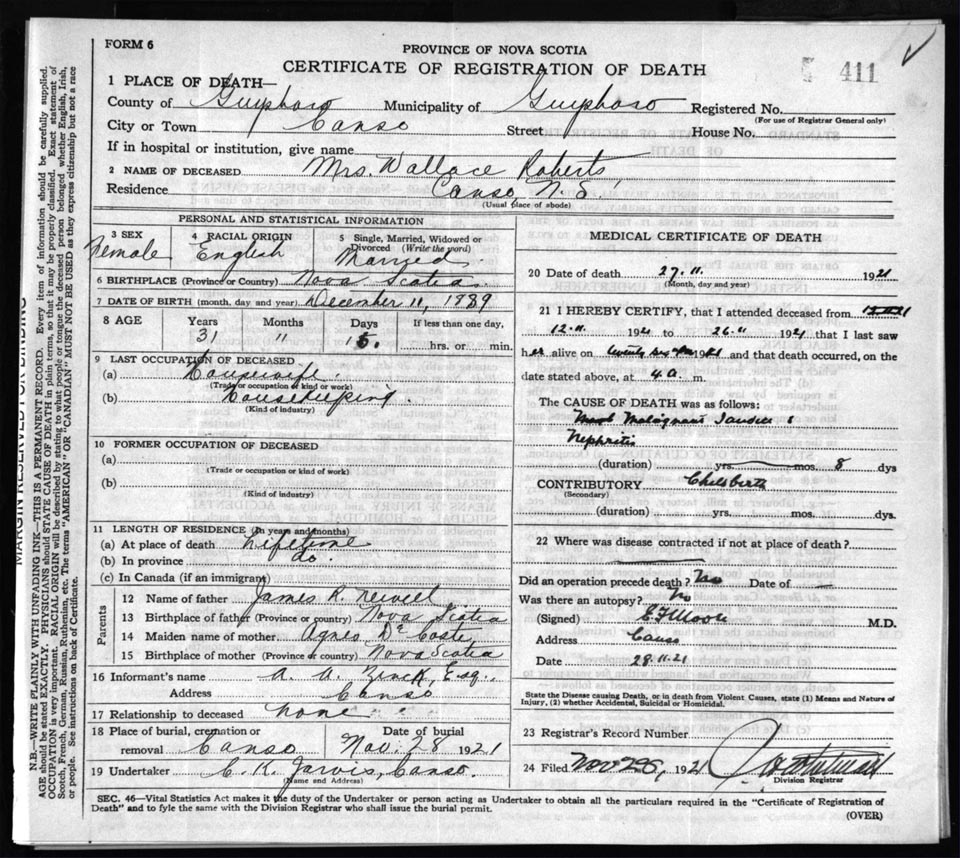 FORM 6
PROVINCE OF NOVA SCOTIA
CERTIFICATE OF REGISTRATION OF DEATH
411
1 PLACE OF DEATH—
County of Guysboro Municipality of Guysboro Registered No.
(For use of Registrar General only)
City or Town Canso Street House No.
If in hospital or institution, give name
2 NAME OF DECEASED Mrs. Wallace Roberts
Residence Canso, N. S.
(Usual place of abode)
PERSONAL AND STATISTICAL INFORMATION
3 SEX
Female
4 RACIAL ORIGIN
English
5 Single, Married, Widowed or Divorced (Write the word)
Married
6 BIRTHPLACE (Province or Country) Nova Scotia
7 DATE OF BIRTH (month, day and year) December 11, 1889
8 AGE Years Months Days If less than one day,
31 11 15. hrs. or min.
9 LAST OCCUPATION OF DECEASED
(a) Housewife
(Trade or occupation or kind of work)
(b) Housekeeping.
(Kind of industry)
10 FORMER OCCUPATION OF DECEASED
(a)
(Trade or occupation or kind of work)
(b)
(Kind of industry)
11 LENGTH OF RESIDENCE (In years and months)
(a) At place of death Lifetime
(b) In province do.
(c) In Canada (if an immigrant)
Parents
12 Name of father James R.
13 Birthplace of father (Province or country) Nova Scotia
14 Maiden name of mother Agnes
15 Birthplace of mother (Province or country) Nova Scotia
16 Informant's name A. A. Zinck, Esq.,
Address Canso
17 Relationship to deceased None
18 Place of burial, cremation or removal Canso
Date of burial
Nov. 28 1921
19 Undertaker C. K. Jarvis, Canso.
(Name and Address)
MEDICAL CERTIFICATE OF DEATH
20 Date of death 27. 11. 1921
(Month, day and year)
21 I HEREBY CERTIFY, that I attended deceased from
12.11. 1921 to 26.11 1921 that I last saw
her alive on 1921 and that death occurred, on the
date stated above, at 4 a. m.
The CAUSE OF DEATH was as follows:
Malignant Jaundice
Nephritis
(duration) yrs. mos. 8 dys
CONTRIBUTORY Childbirth
(Secondary)
(duration) yrs. mos. dys.
22 Where was disease contracted if not at place of death?
Did an operation precede death? No Date of
Was there an autopsy? No
(Signed) M.D.
Address Canso
Date 28.11.21
State the Disease causing Death, or in death from Violent Causes, state (1) Means and Nature of
Injury, (2) whether Accidental, Suicidal or Homicidal.
23 Registrar's Record Number
24 Filed Nov 28, 1921
Division Registrar
SEC. 46—Vital Statistics Act makes it the duty of the Undertaker or person acting as Undertaker to obtain all the particulars required in the "Certificate of Registration of
Death" and to fyle the same with the Division Registrar who shall issue the burial permit.
(OVER)
MARGIN RESERVED FOR BINDING
N.B.—WRITE PLAINLY WITH UNFADING INK—THIS IS A PERMANENT RECORD. Every item of information should be carefully supplied.
AGE should be stated EXACTLY. PHYSICIANS should STATE CAUSE OF DEATH in plain terms, so that it may be properly classified. Exact statement of
OCCUPATION is very important. RACIAL ORIGIN will be described by stating to what people or tongue the deceased person belonged whether English, Irish,
Scotch, French, German, Russian, Ruthenian, etc. The terms "AMERICAN" OR "CANADIAN" MUST NOT BE USED as they express citizenship but not a race
or people. See instructions on back of Certificate.